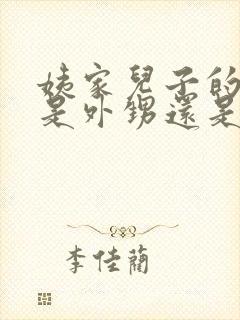 姨家兒子的
是外甥還是
李佳蘭